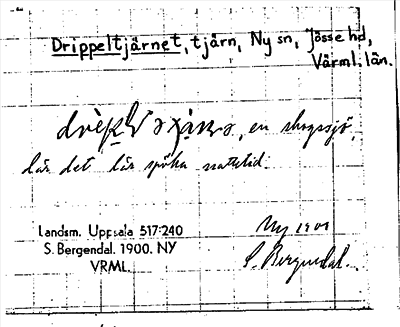 Drippeltjärnet, tjärn, Ny sn, Jösse hd,
Värml. län.
en skogssjö,
där det lär spöka nattetid.
Landsm. Uppsala 517:240
S. Bergendal. 1900. NY
VRML.
Ny 1900
S. Bergendal.